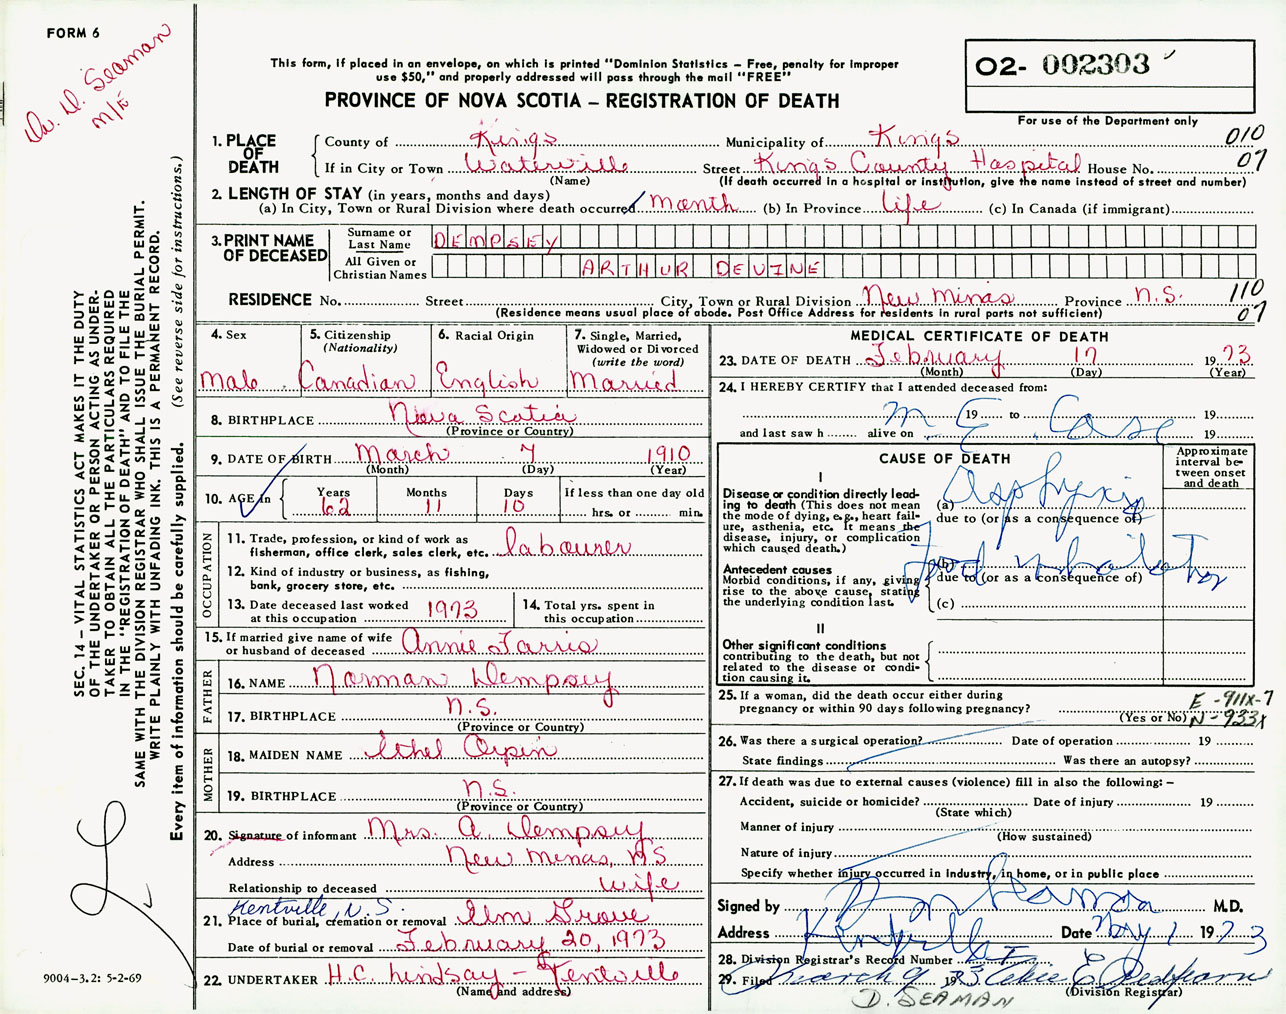 FORM 6
Dr. D. Seaman
M/E
This form, if placed in an envelope, on which is printed "Dominion Statistics – Free, penalty for improper
use $50," and properly addressed will pass through the mail "FREE"
PROVINCE OF NOVA SCOTIA – REGISTRATION OF DEATH
02- 002303
For use of the Department only
SEC. 14 – VITAL STATISTICS ACT MAKES IT THE DUTY
OF THE UNDERTAKER OR PERSON ACTING AS UNDER-
TAKER TO OBTAIN ALL THE PARTICULARS REQUIRED
IN THE "REGISTRATION OF DEATH" AND TO FILE THE
SAME WITH THE DIVISION REGISTRAR WHO SHALL ISSUE THE BURIAL PERMIT.
WRITE PLAINLY WITH UNFADING INK. THIS IS A PERMANENT RECORD.
Every item of information should be carefully supplied. (See reverse side for instructions.)
1. PLACE OF DEATH County of Kings Municipality of Kings 010
If in City or Town Waterville Street Kings County Hospital House No. 07
(Name) (If death occurred in a hospital or institution, give the name instead of street and number)
2. LENGTH OF STAY (in years, months and days)
(a) In City, Town or Rural Division where death occurred 1 Month (b) In Province life (c) In Canada (if immigrant)
3. PRINT NAME OF DECEASED Surname or Last Name DEMPSEY
All Given or Christian Names ARTHUR DEVINE
RESIDENCE No. Street City, Town or Rural Division New Minas Province N.S. 110
(Residence means usual place of abode. Post Office Address for residents in rural parts not sufficient) 07
4. Sex Male
5. Citizenship (Nationality) Canadian
6. Racial Origin English
7. Single, Married, Widowed or Divorced (write the word) Married
8. BIRTHPLACE Nova Scotia
(Province or Country)
9. DATE OF BIRTH March 7 1910
(Month) (Day) (Year)
10. AGE in Years 62 Months 11 Days 10 If less than one day old hrs. or min.
OCCUPATION
11. Trade, profession, or kind of work as
fisherman, office clerk, sales clerk, etc. labourer
12. Kind of industry or business, as fishing,
bank, grocery store, etc.
13. Date deceased last worked at this occupation 1973
14. Total yrs. spent in this occupation
15. If married give name of wife or husband of deceased Annie Farris
FATHER
16. NAME Norman Dempsey
17. BIRTHPLACE N.S.
(Province or Country)
MOTHER
18. MAIDEN NAME Ethel Orpin
19. BIRTHPLACE N.S.
(Province or Country)
20. Signature of informant Mrs. A Dempsey
Address New Minas, NS
Relationship to deceased wife
Kentville, N.S.
21. Place of burial, cremation or removal Elm Grove
Date of burial or removal February 20, 1973
22. UNDERTAKER H.C. Lindsay – Kentville
(Name and address)
9004–3.2: 5-2-69
MEDICAL CERTIFICATE OF DEATH
23. DATE OF DEATH February 17 1973
(Month) (Day) (Year)
24. I HEREBY CERTIFY that I attended deceased from:
M E 19 to Case 19
and last saw h alive on 19
CAUSE OF DEATH
Approximate interval between onset and death
I
Disease or condition directly lead-
ing to death (This does not mean
the mode of dying, e.g., heart fail-
ure, asthenia, etc. It means the
disease, injury, or complication
which caused death.)
(a) Asphyxia
due to (or as a consequence of)
Antecedent causes
Morbid conditions, if any, giving
rise to the above cause, stating
the underlying condition last.
(b) Food inhalation
due to (or as a consequence of)
(c)
II
Other significant conditions
contributing to the death, but not
related to the disease or condi-
tion causing it.
25. If a woman, did the death occur either during
pregnancy or within 90 days following pregnancy?
(Yes or No)
E -911X-7
N -933X
26. Was there a surgical operation? Date of operation 19
State findings Was there an autopsy?
27. If death was due to external causes (violence) fill in also the following: –
Accident, suicide or homicide? Date of injury 19
(State which)
Manner of injury
(How sustained)
Nature of injury
Specify whether injury occurred in Industry, in home, or in public place
Signed by Seaman M.D.
Address Kentville Date May 1 1973
28. Division Registrar's Record Number
29. Filed March 9 1973
(Division Registrar)
D. SEAMAN